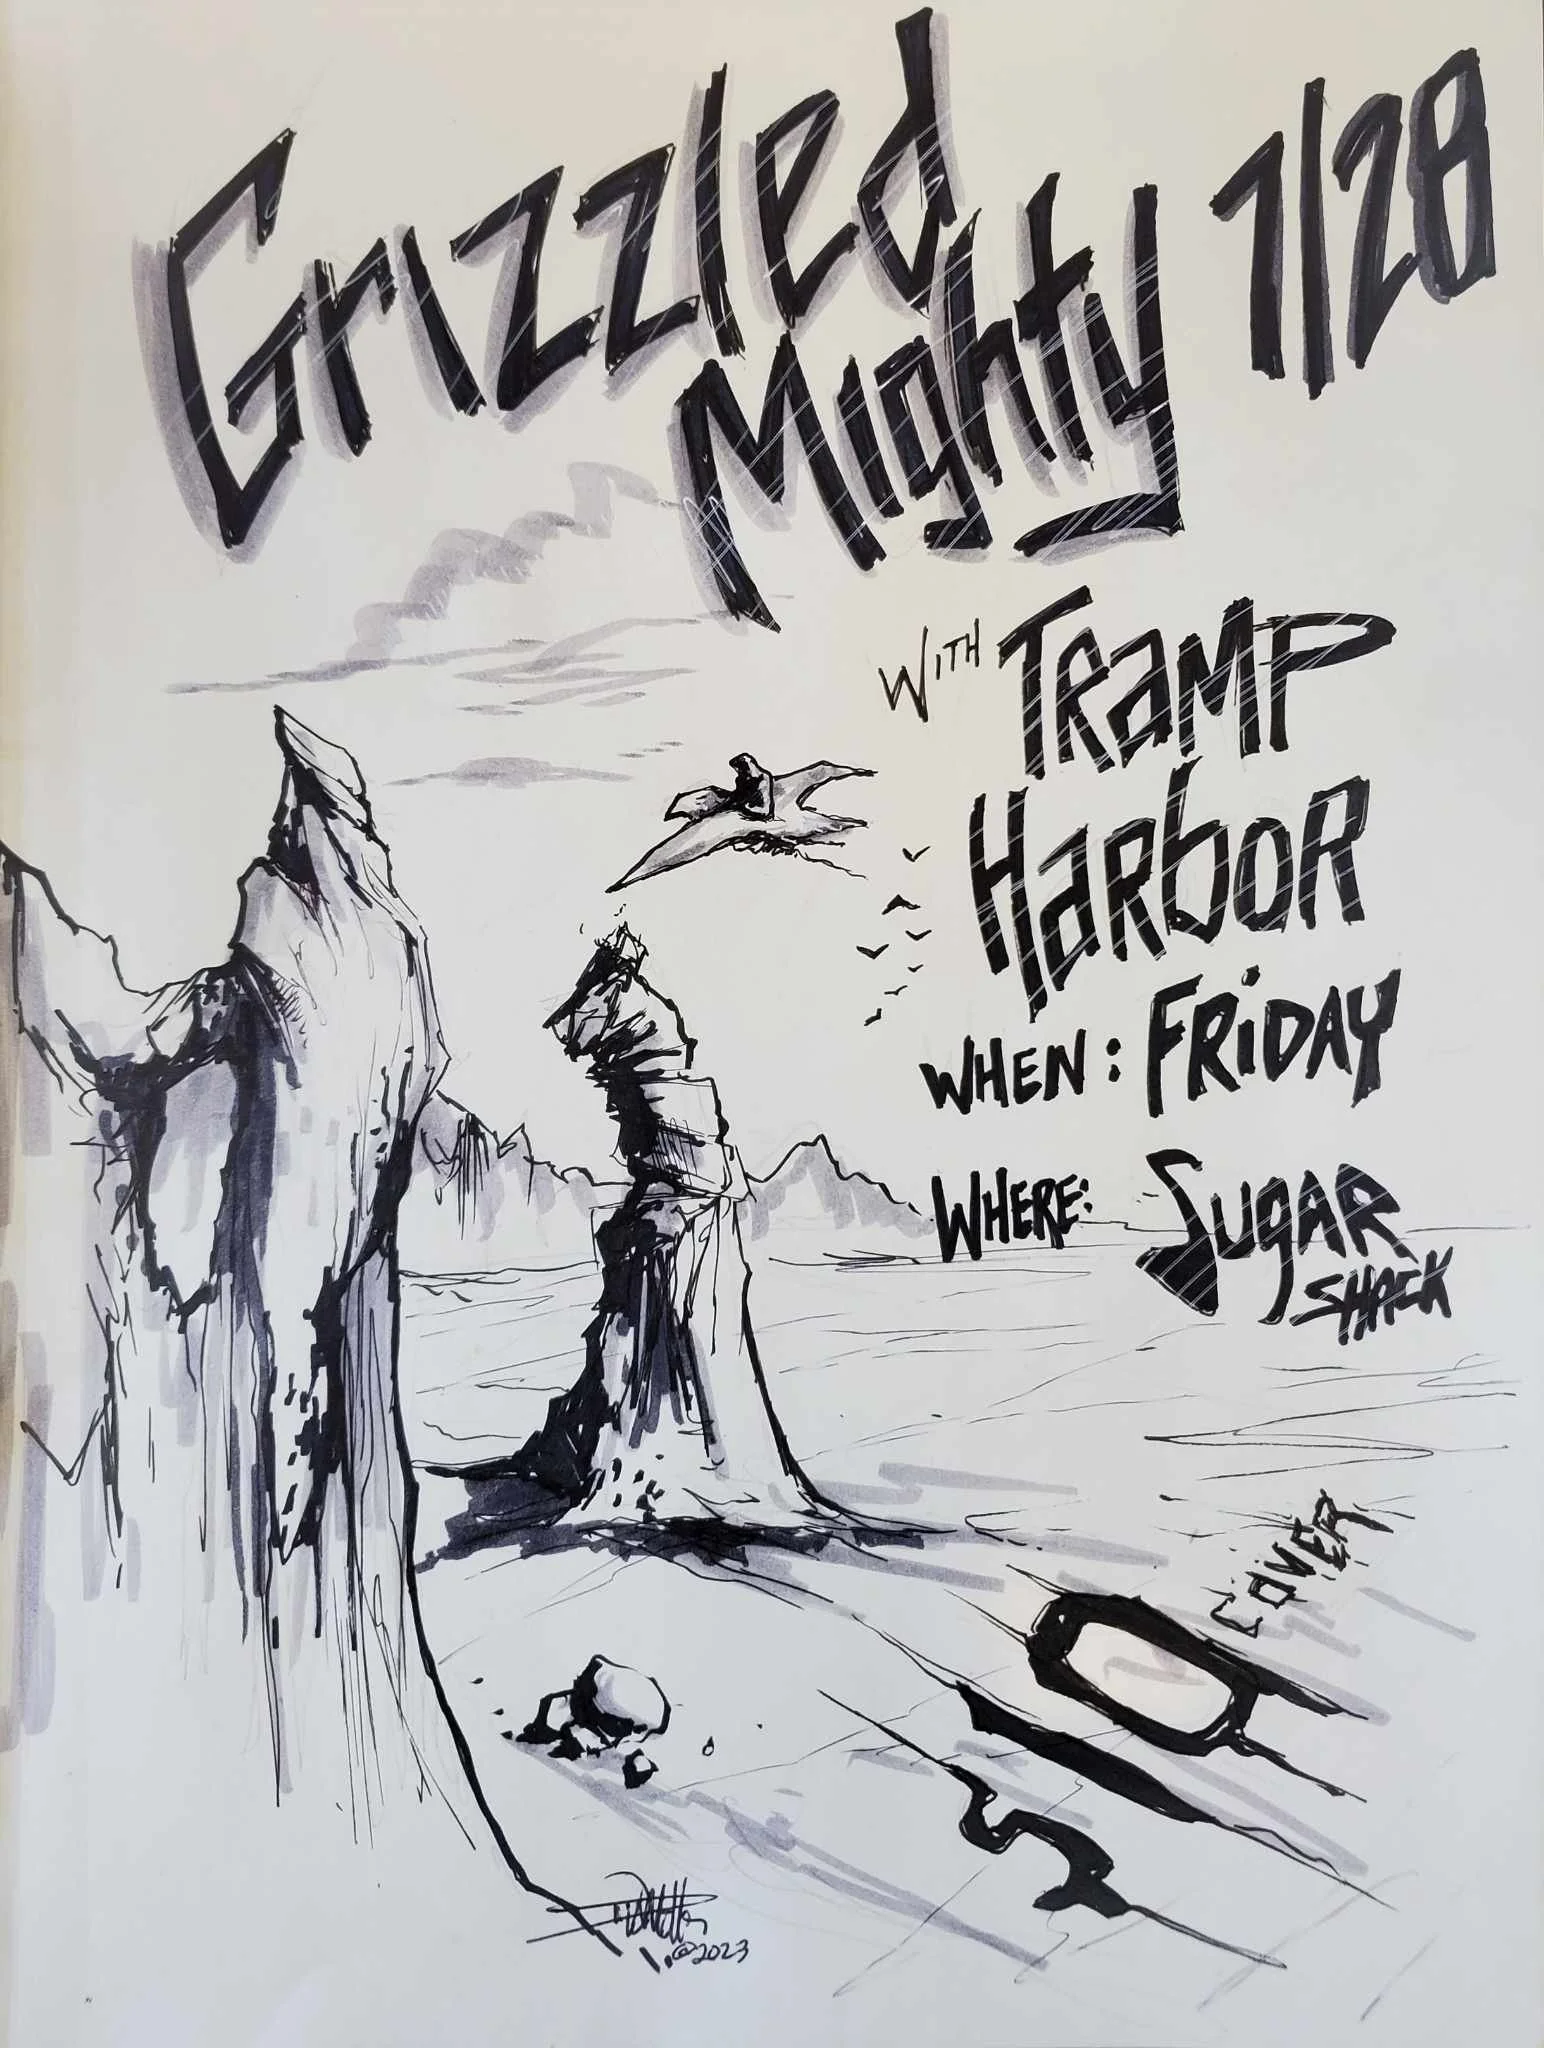 Grizzled
Mighty 7/28
WITH TRaMP
HaRboR
WHEN: FRiDAY
WHERE: SugaR
SHACK
$10 COVER
©2023